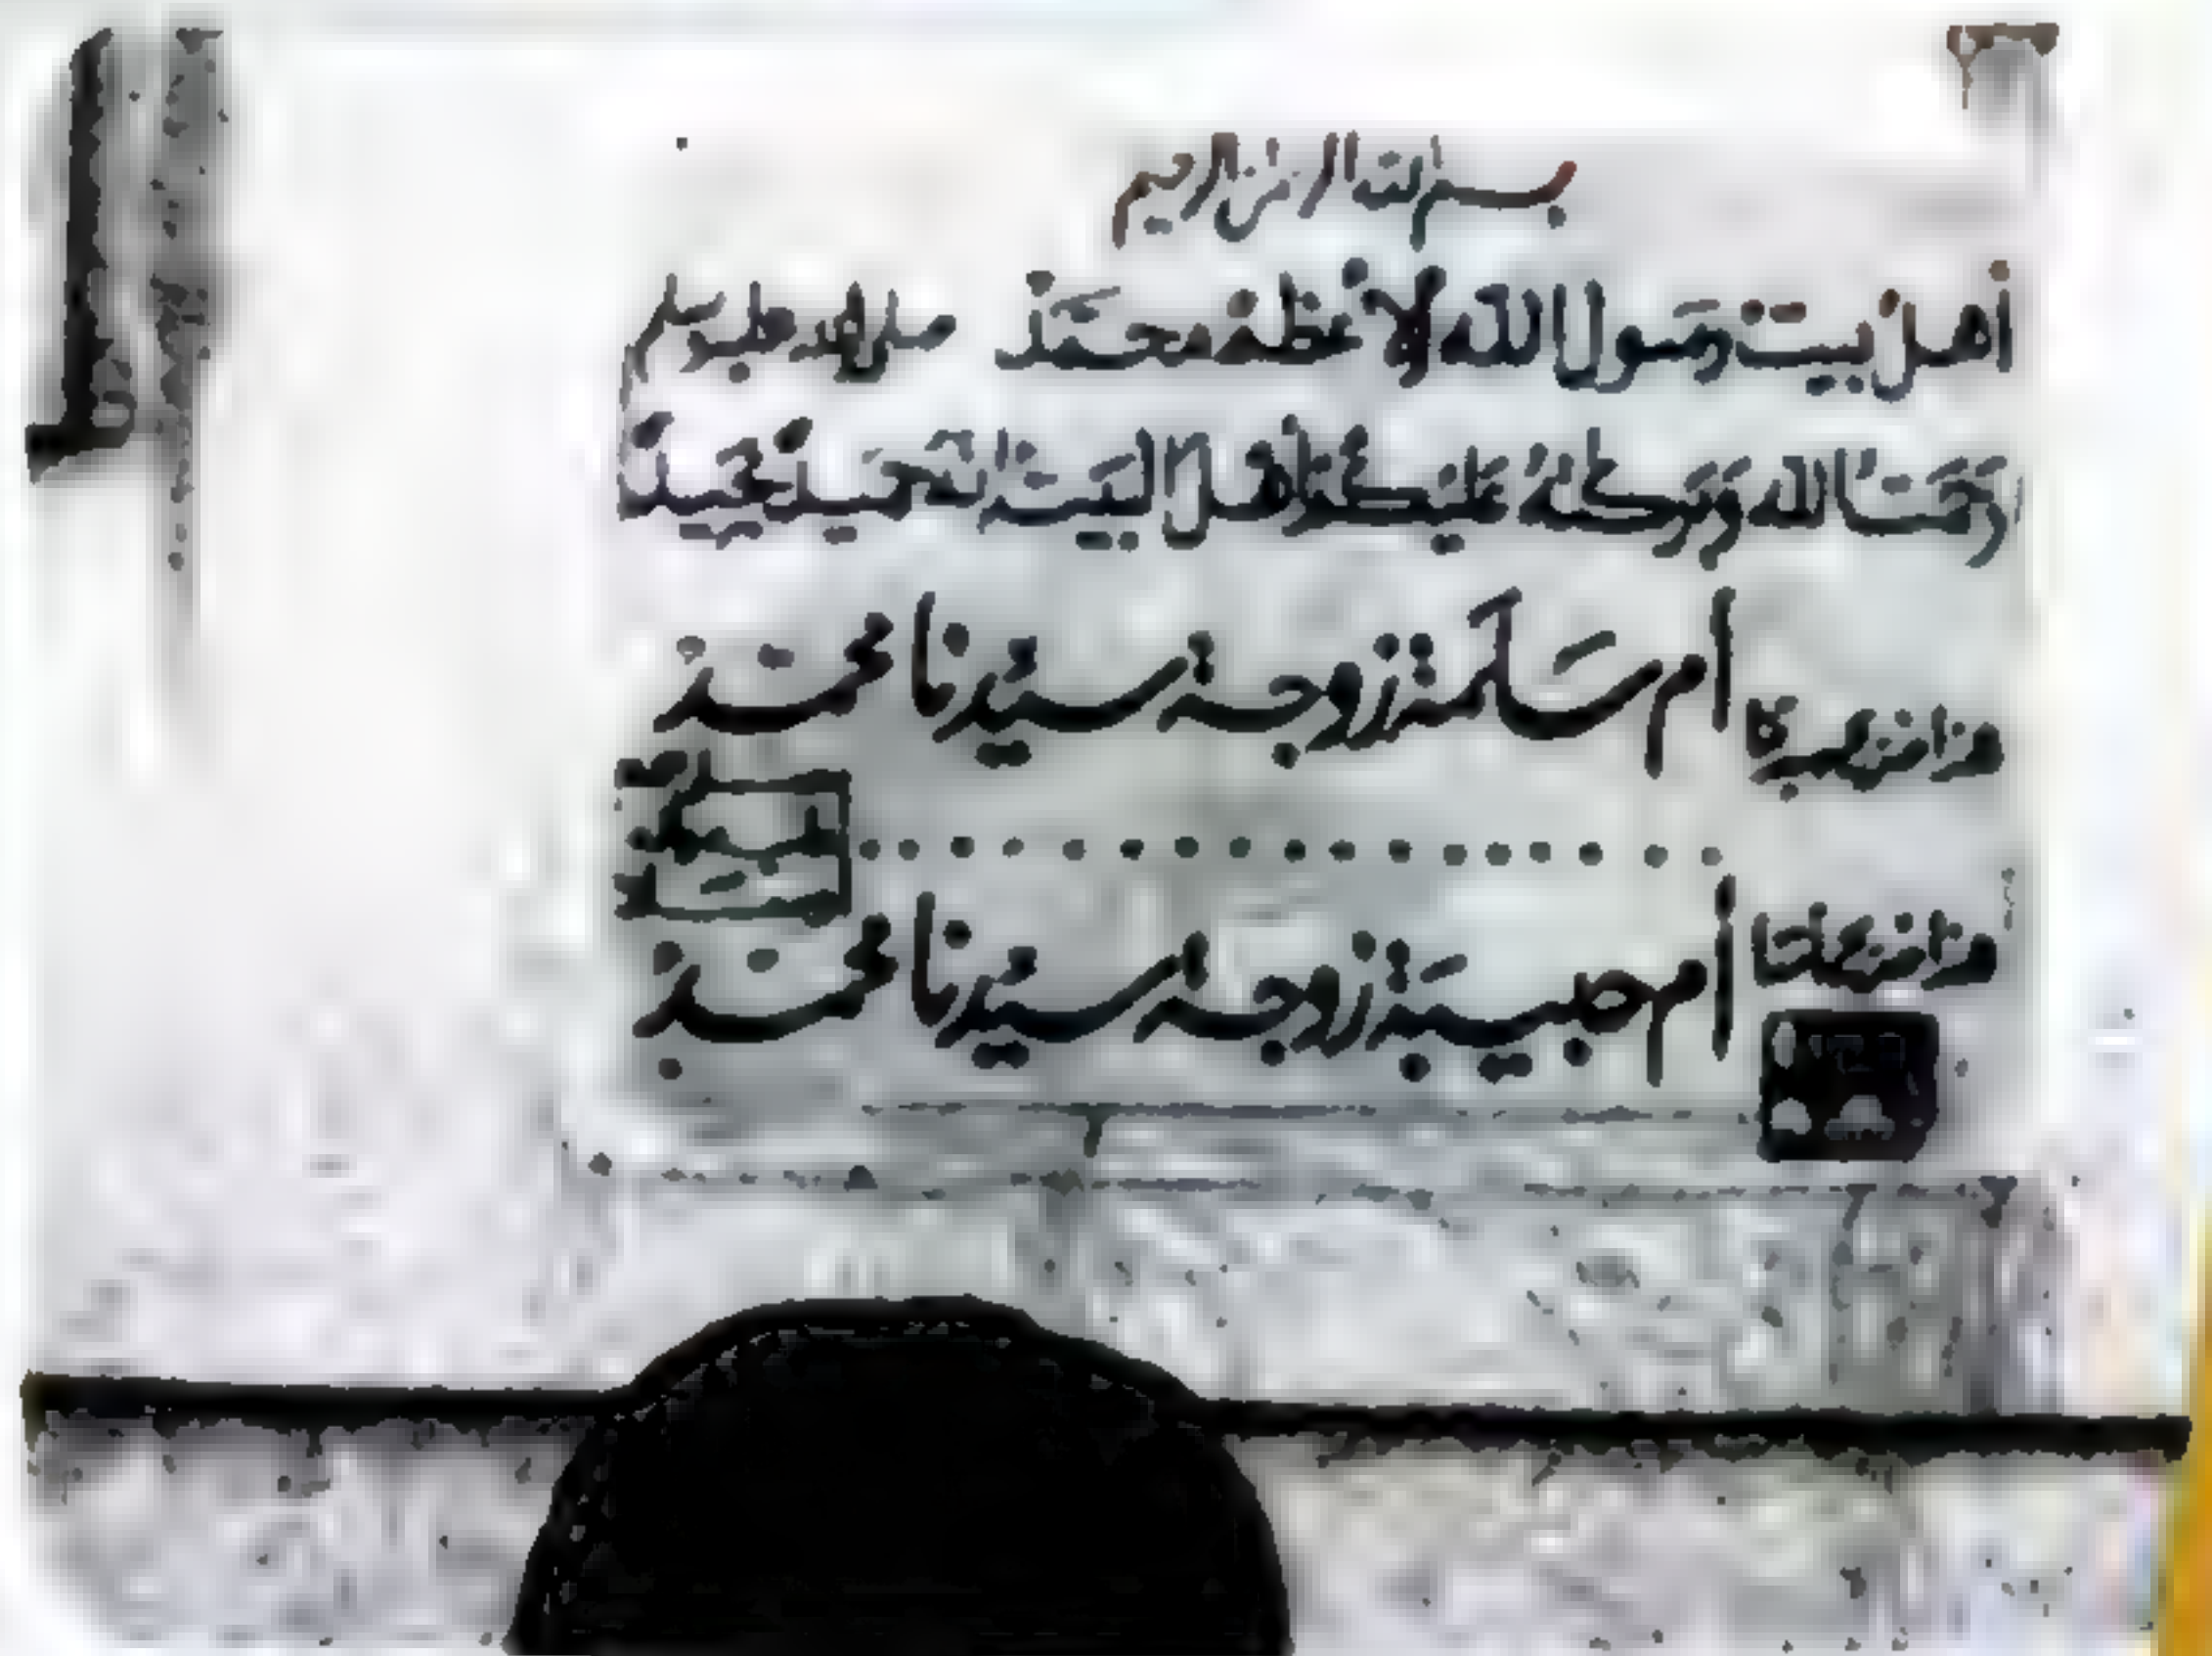 بسم الله الرحمن الرحيم
أهل بيت رسول الله محمد صلى الله عليه وسلم
رحمت الله وبركاته عليكم أهل البيت إنه حميد مجيد
أم سلمة زوجة سيدنا محمد
هذا ضريح
أم حبيبة زوجة سيدنا محمد
هذا ضريح